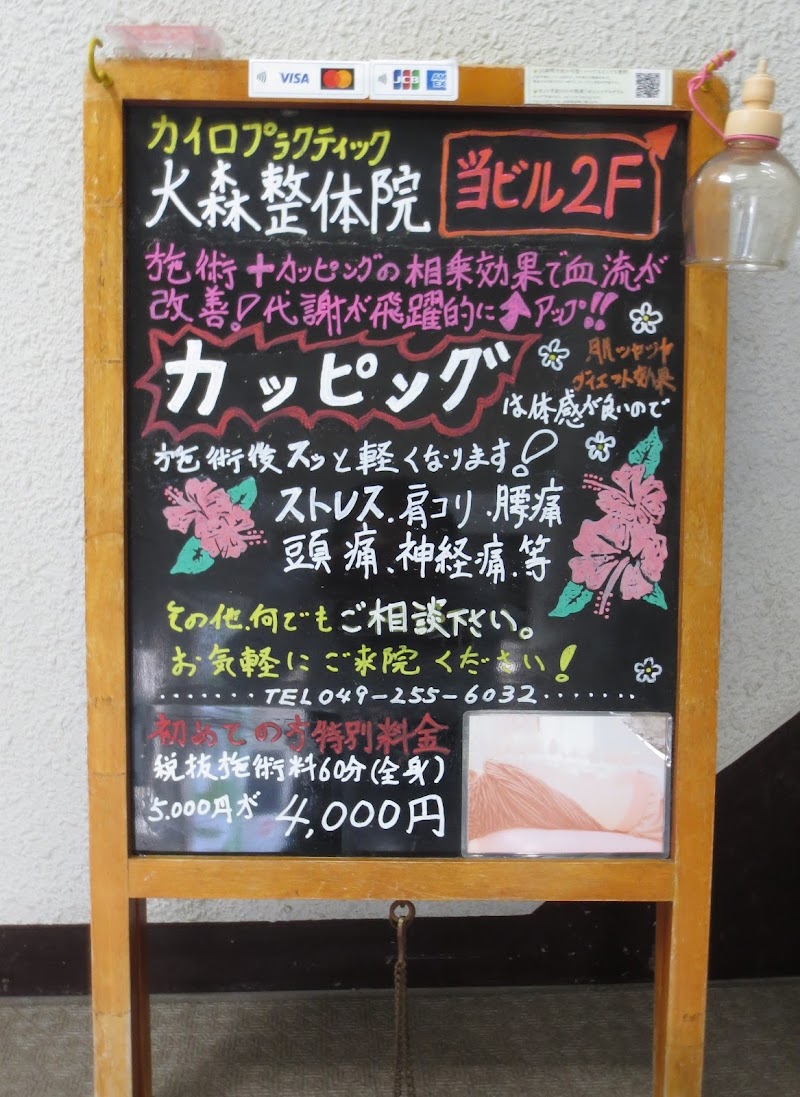 VISA
JCB
カイロプラクティック
大森整体院
当ビル2F
施術+カッピングの相乗効果で血流が
改善!代謝が飛躍的に アップ!!
カッピング
肌ツヤツヤ
ダイエット効果
は体感が良いので
施術後スッと軽くなります!
ストレス.肩コリ.腰痛
頭痛、神経痛.等
その他.何でもご相談下さい。
お気軽にご来院ください!
.......TEL049-255-6032.......
初めての方特別料金
税抜施術料60分(全身)
5.000円が 4,000円